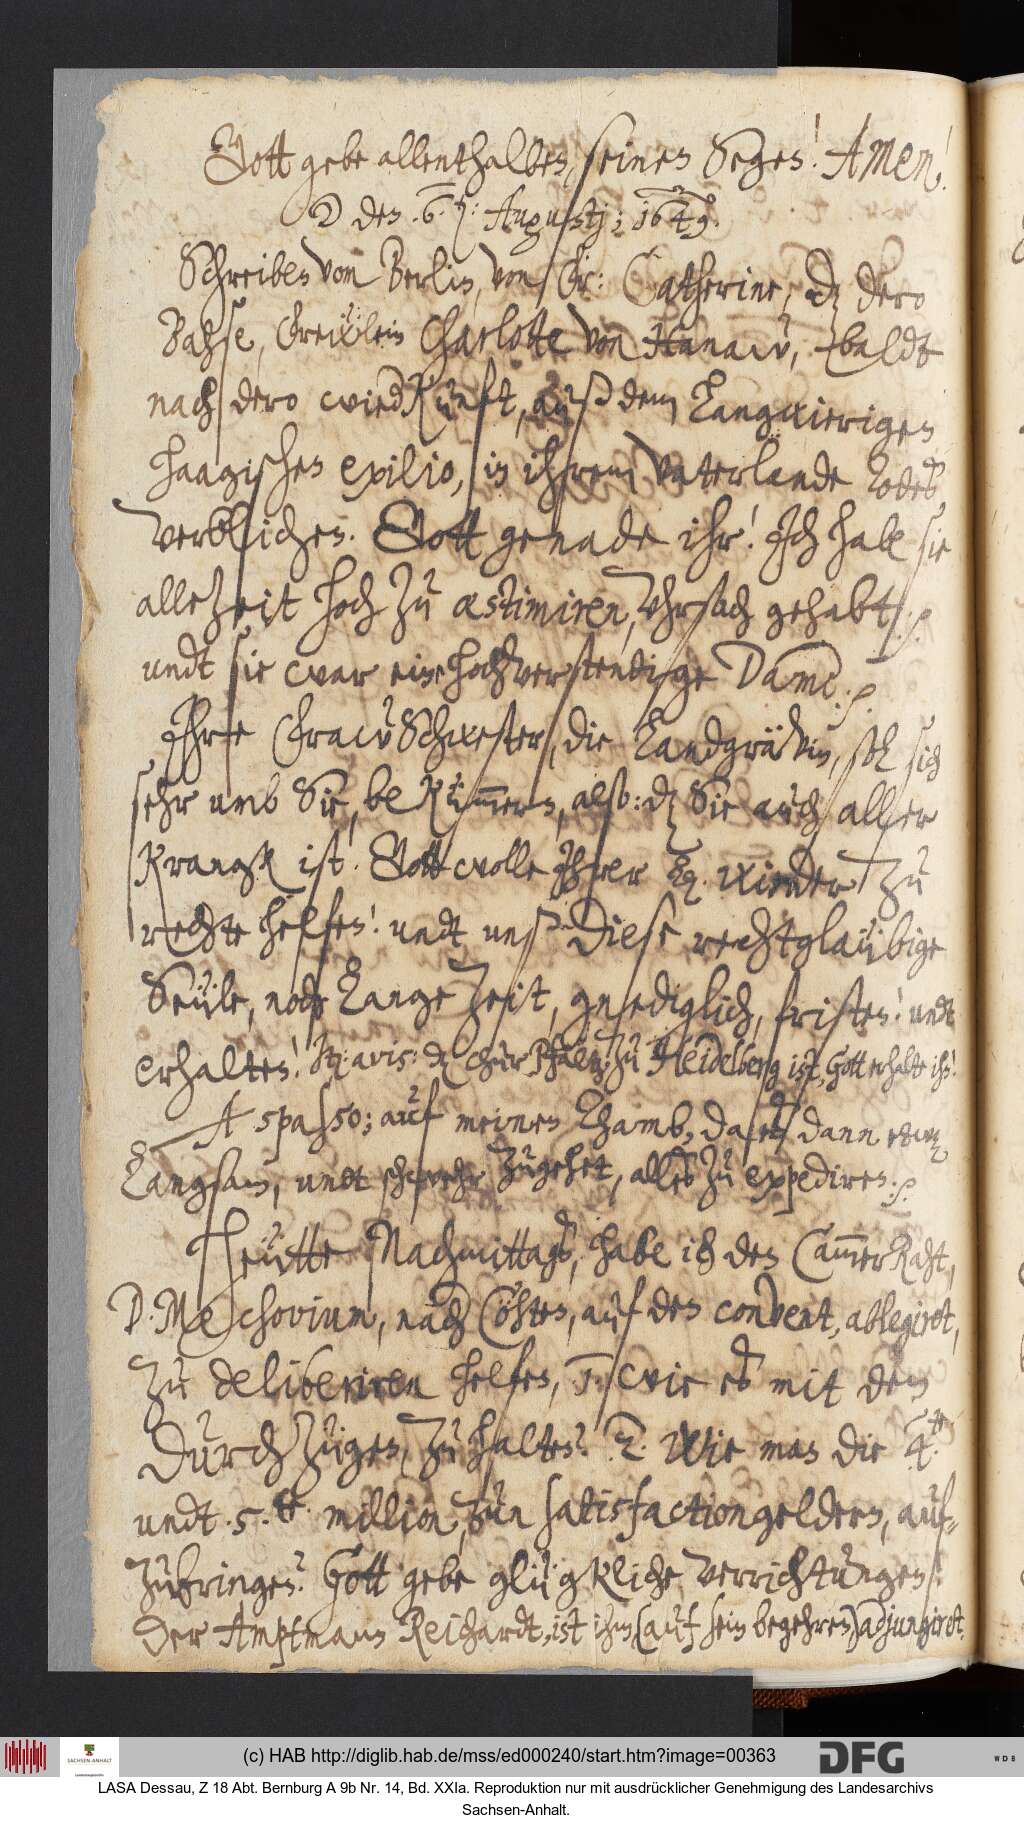 Gott gebe allenthalben, seinen Segen! Amen!
☽ den .6. ten: Augustj; 1649.
Schreiben von Berlin, von Fr: Catherine, dz dero
Bahse, Freẅlein Charlotte von Hanaw, baldt
nach dero wiedkunft, auß dem Langwierigen
haagischen exilio, in ihrem Vaterlande Todes
verblichen. Gott genade ihr! Ich habe sie
allezeit hoch zu æstimiren, Uhrsach gehabt.
undt sie war eine hochverstendige Dame.
Ihre Fraw Schwester, die Landgräfin, soll sich
sehr umb Sie, bekümmern, also: dz Sie auch
krangk ist! Gott wolle Ihrer wieder zu
rechte helfen! undt unß diese rechtglaübige
Seüle, noch Lange Zeit, gnediglich, fristen! undt
erhalten! avis: dz Chur Pfaltz zu Heidelberg ist, Gott erhalte ihn!
A spasso; auf meinen dann etwaz
Langsam, undt schwehr zugehet, alles zu expediren.
Heütte Nachmittags, habe ich den CammerRaht,
D. Mechovium, nach Cöhten, auf den convent, ablegiret,
zu deliberiren helfen, 1. wie es mit den
Durchzügen, zu halten? 2. Wie man die 4.te
undt .5.te million, zun satisfactiongeldern, auf-
zubringen? Gott gebe glügkliche verrichtungen!
Der Amptmann Reichardt, ist ihm, (auf sein begehren) adjungiret.
(c) HAB http://diglib.hab.de/mss/ed000240/start.htm?image=00363
SACHSEN-ANHALT
DFG
WDB
LASA Dessau, Z 18 Abt. Bernburg A 9b Nr. 14, Bd. XXIa. Reproduktion nur mit ausdrücklicher Genehmigung des Landesarchivs
Sachsen-Anhalt.